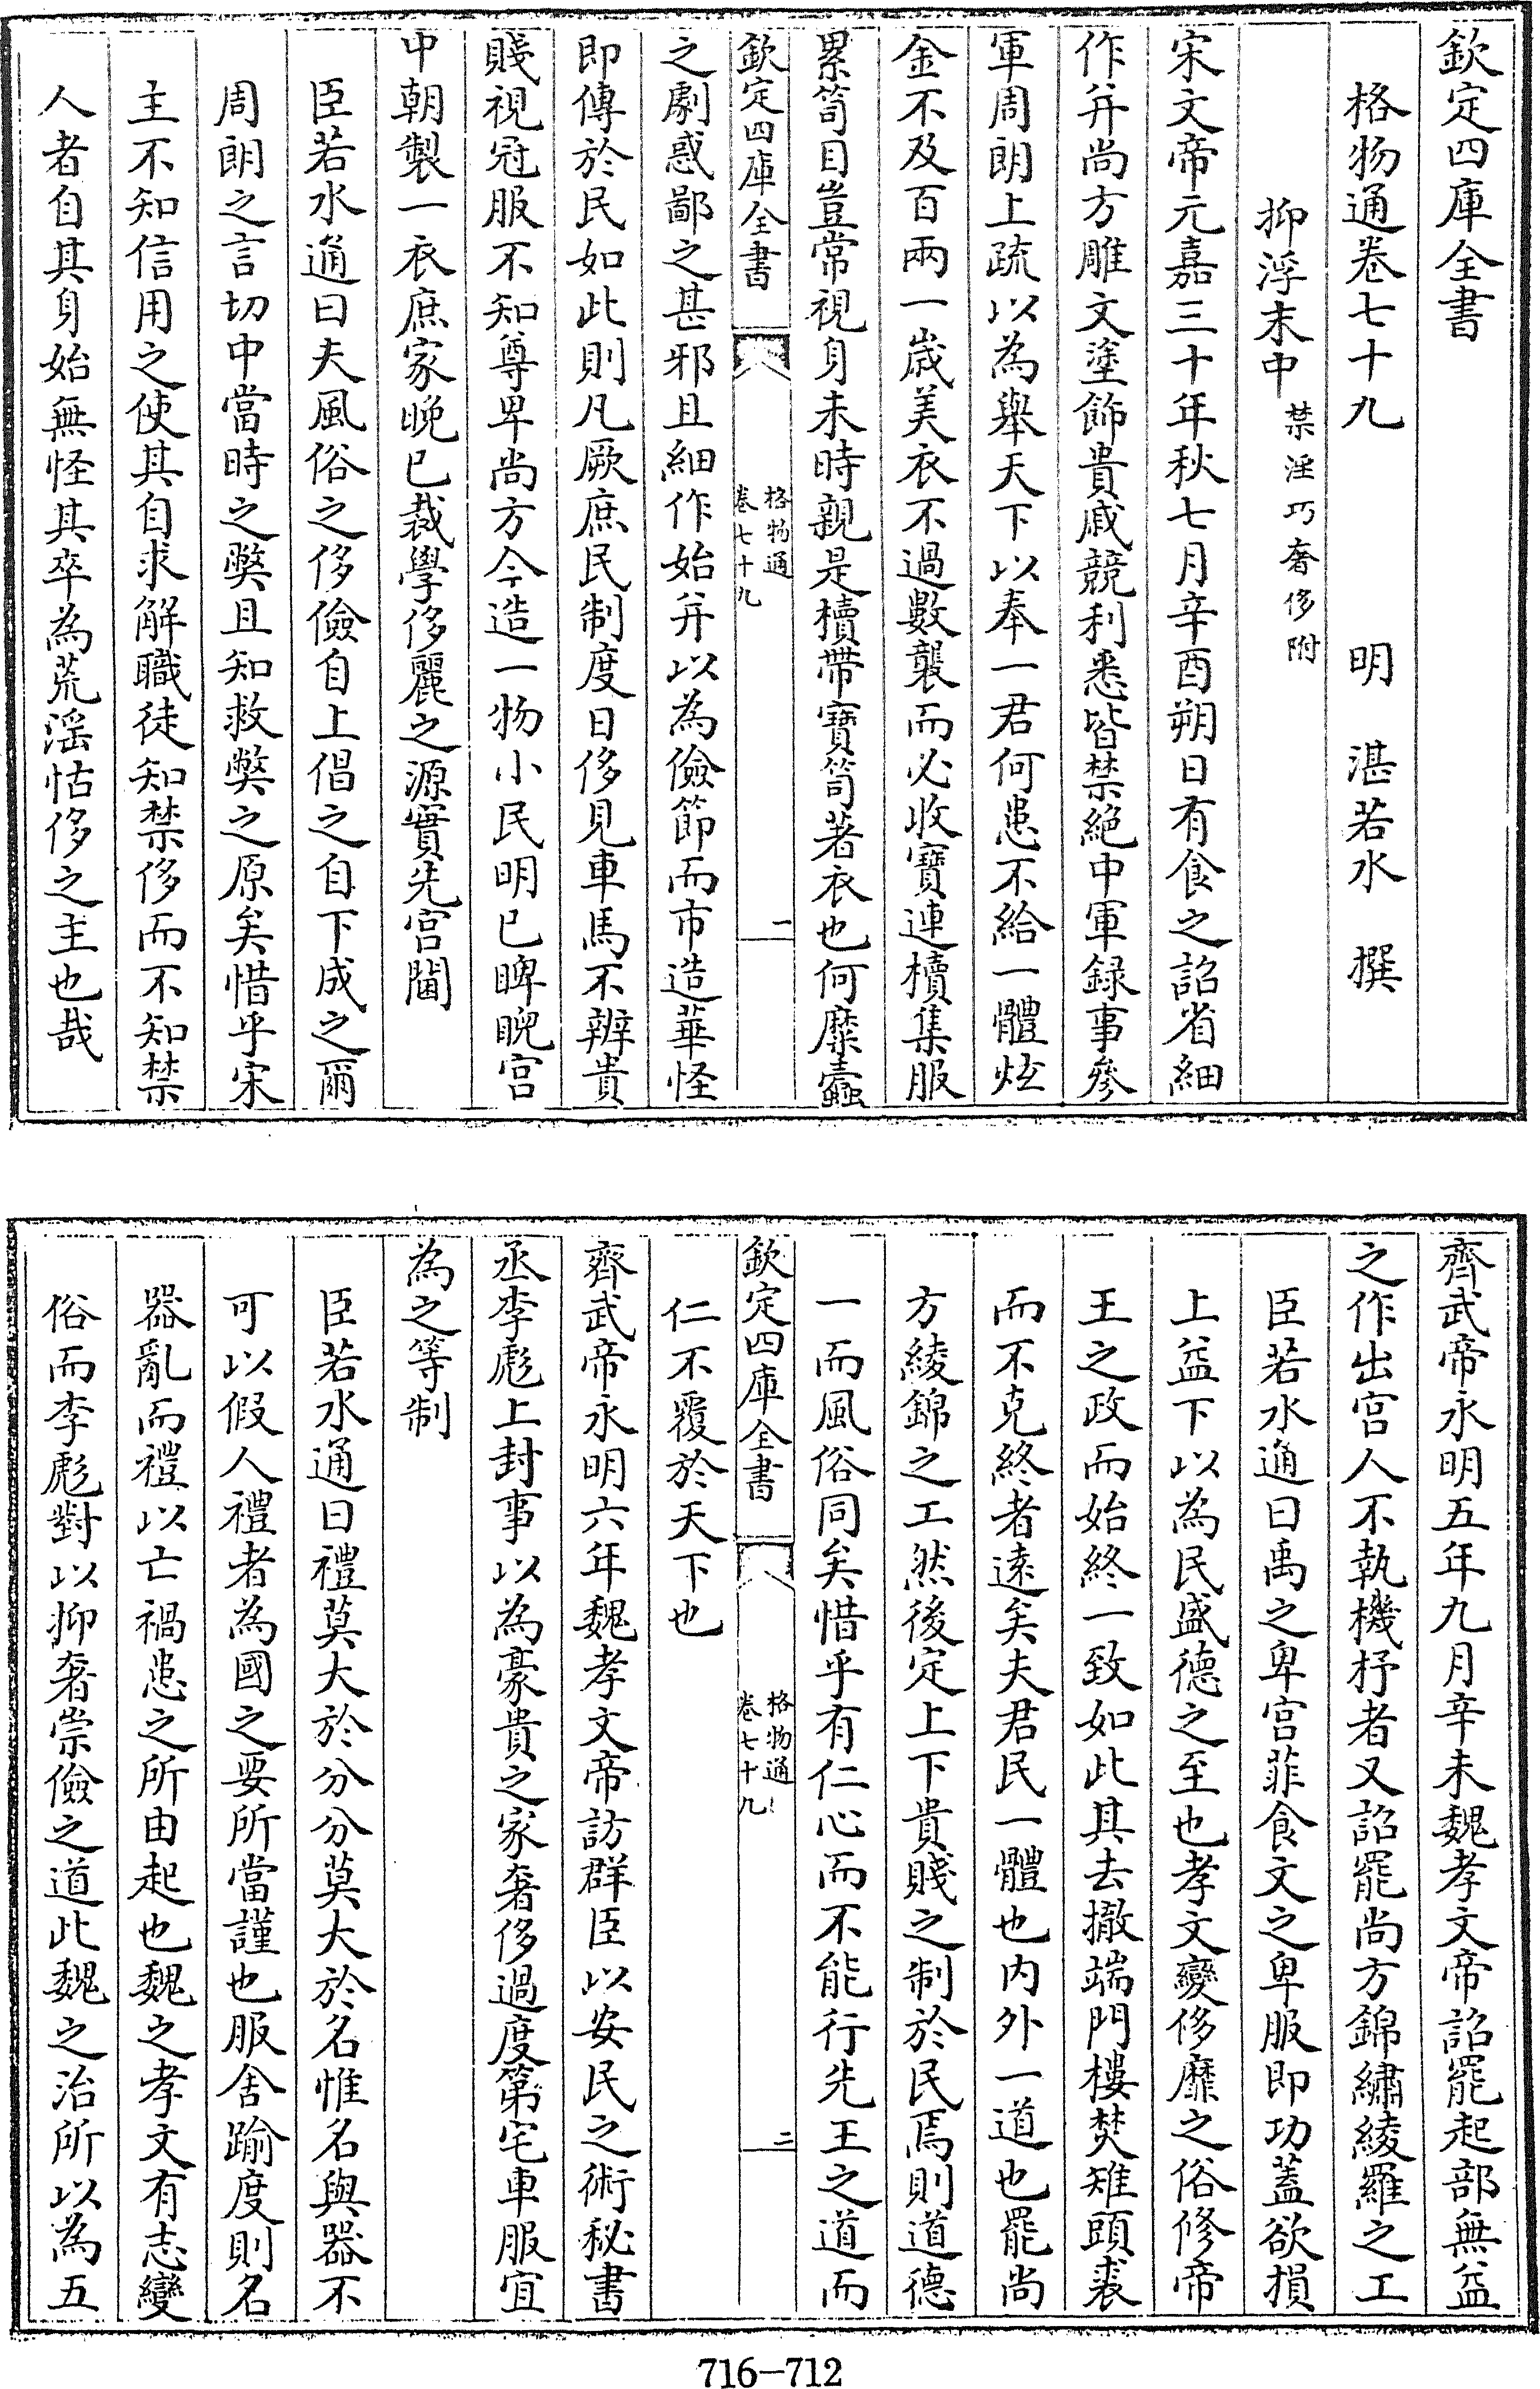 欽定四庫全書
格物通卷七十九　明　湛若水　撰
抑浮末中禁淫巧奢侈附
宋文帝元嘉三十年秋七月辛酉朔日有食之詔省細
作并尚方雕文塗飾貴戚競利悉皆禁絕中軍録事參
軍周朗上疏以為舉天下以奉一君何患不給一體炫
金不及百兩一歲美衣不過數襲而必收寶連櫝集服
累笥目豈常視身未時親是櫝帶寶笥著衣也何糜蠹
欽定四庫全書
格物通
卷七十九
一
之劇惑鄙之甚邪且細作始并以為儉節而市造華怪
即傳於民如此則凡厥庶民制度日侈見車馬不辨貴
賤視冠服不知尊卑尚方今造一物小民明已睥睨宫
中朝製一衣庶家晚已裁學侈麗之源實先宫閫
臣若水通曰夫風俗之侈儉自上倡之自下成之爾
周朗之言切中當時之獘且知救獘之原矣惜乎宋
主不知信用之使其自求解職徒知禁侈而不知禁
人者自其身始無怪其卒為荒淫怙侈之主也哉
齊武帝永明五年九月辛未魏孝文帝詔罷起部無益
之作出宫人不執機杼者又詔罷尚方錦繡綾羅之工
臣若水通曰禹之卑宫菲食文之卑服即功蓋欲損
上益下以為民盛德之至也孝文變侈靡之俗修帝
王之政而始終一致如此其去撤端門樓焚雉頭裘
而不克終者遠矣夫君民一體也内外一道也罷尚
方綾錦之工然後定上下貴賤之制於民焉則道德
一而風俗同矣惜乎有仁心而不能行先王之道而
欽定四庫全書
格物通
卷七十九
二
仁不覆於天下也
齊武帝永明六年魏孝文帝訪群臣以安民之術秘書
丞李彪上封事以為豪貴之家奢侈過度第宅車服宜
為之等制
臣若水通曰禮莫大於分分莫大於名惟名與器不
可以假人禮者為國之要所當謹也服舍踰度則名
器亂而禮以亡禍患之所由起也魏之孝文有志變
俗而李彪對以抑奢崇儉之道此魏之治所以為五
716-712